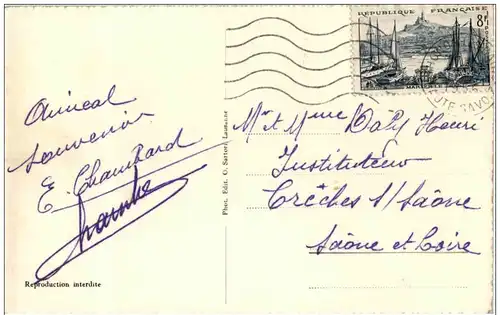 Amical
souvenir
E. Chambard
Reproduction interdite
Phot. Edit. O. Sartori, Lausanne
REPUBLIQUE FRANÇAISE
8F
Mr et Mme Henri
Instituteur
Crèches s/ Saône
Saône et Loire